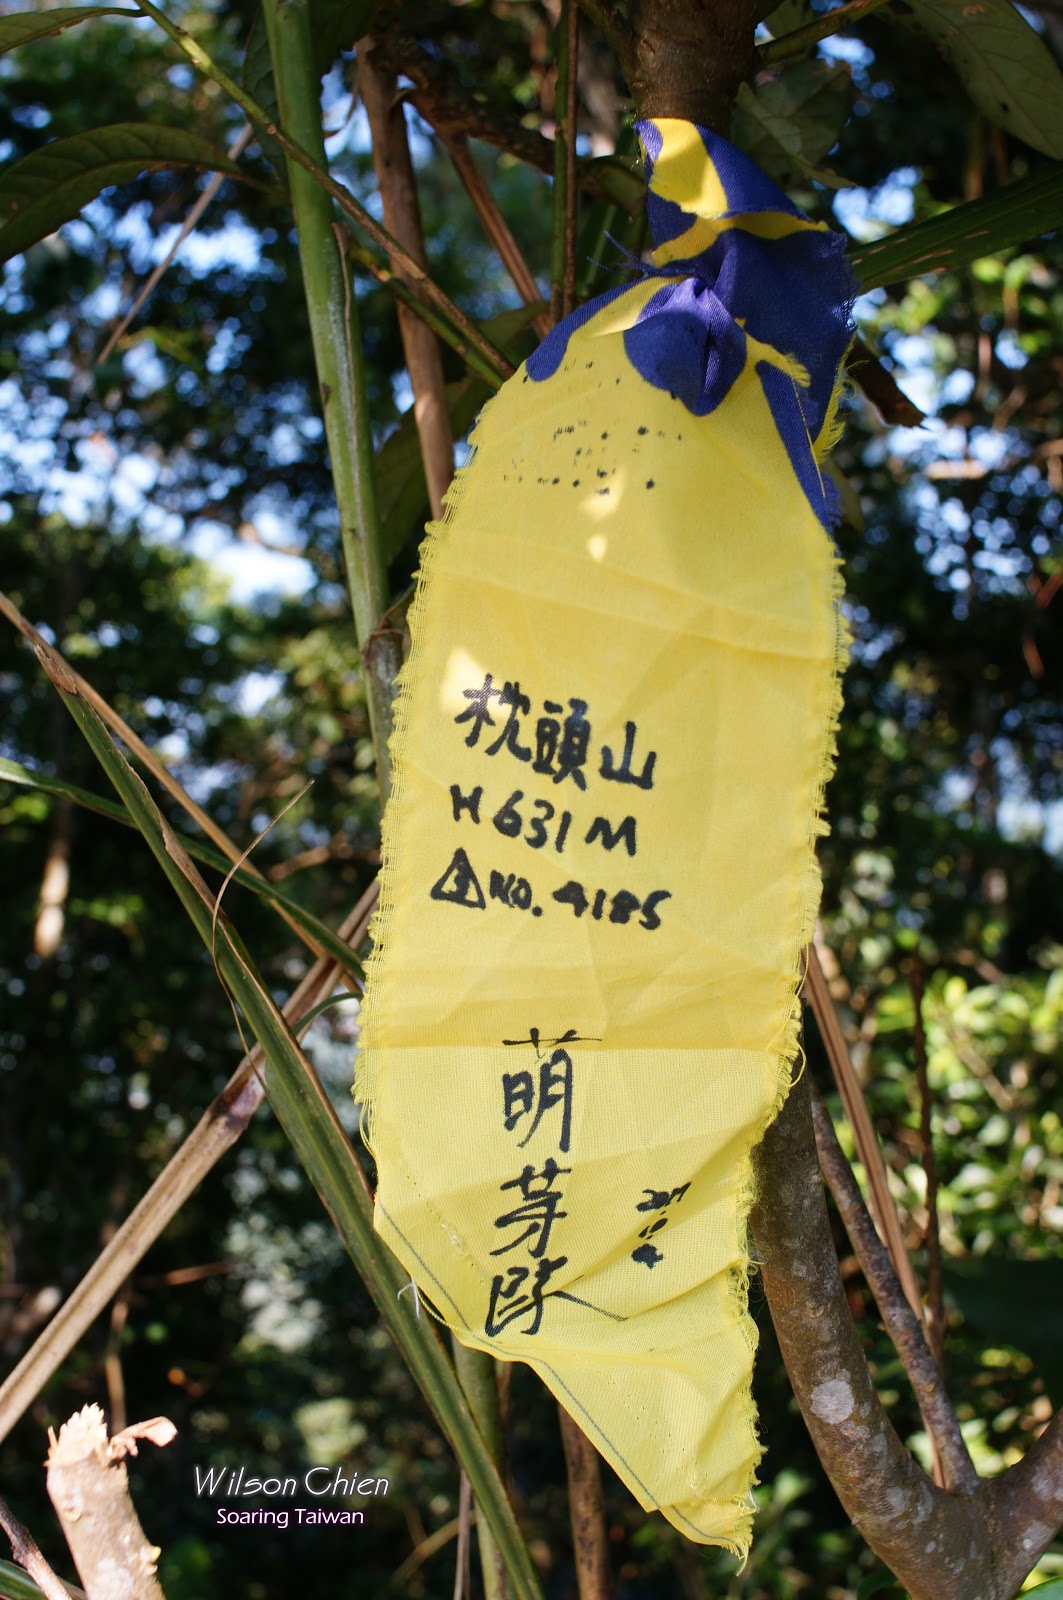 枕頭山
H 631 M
△3 NO. 4185
萌芽隊
2017
10
Wilson Chien
Soaring Taiwan